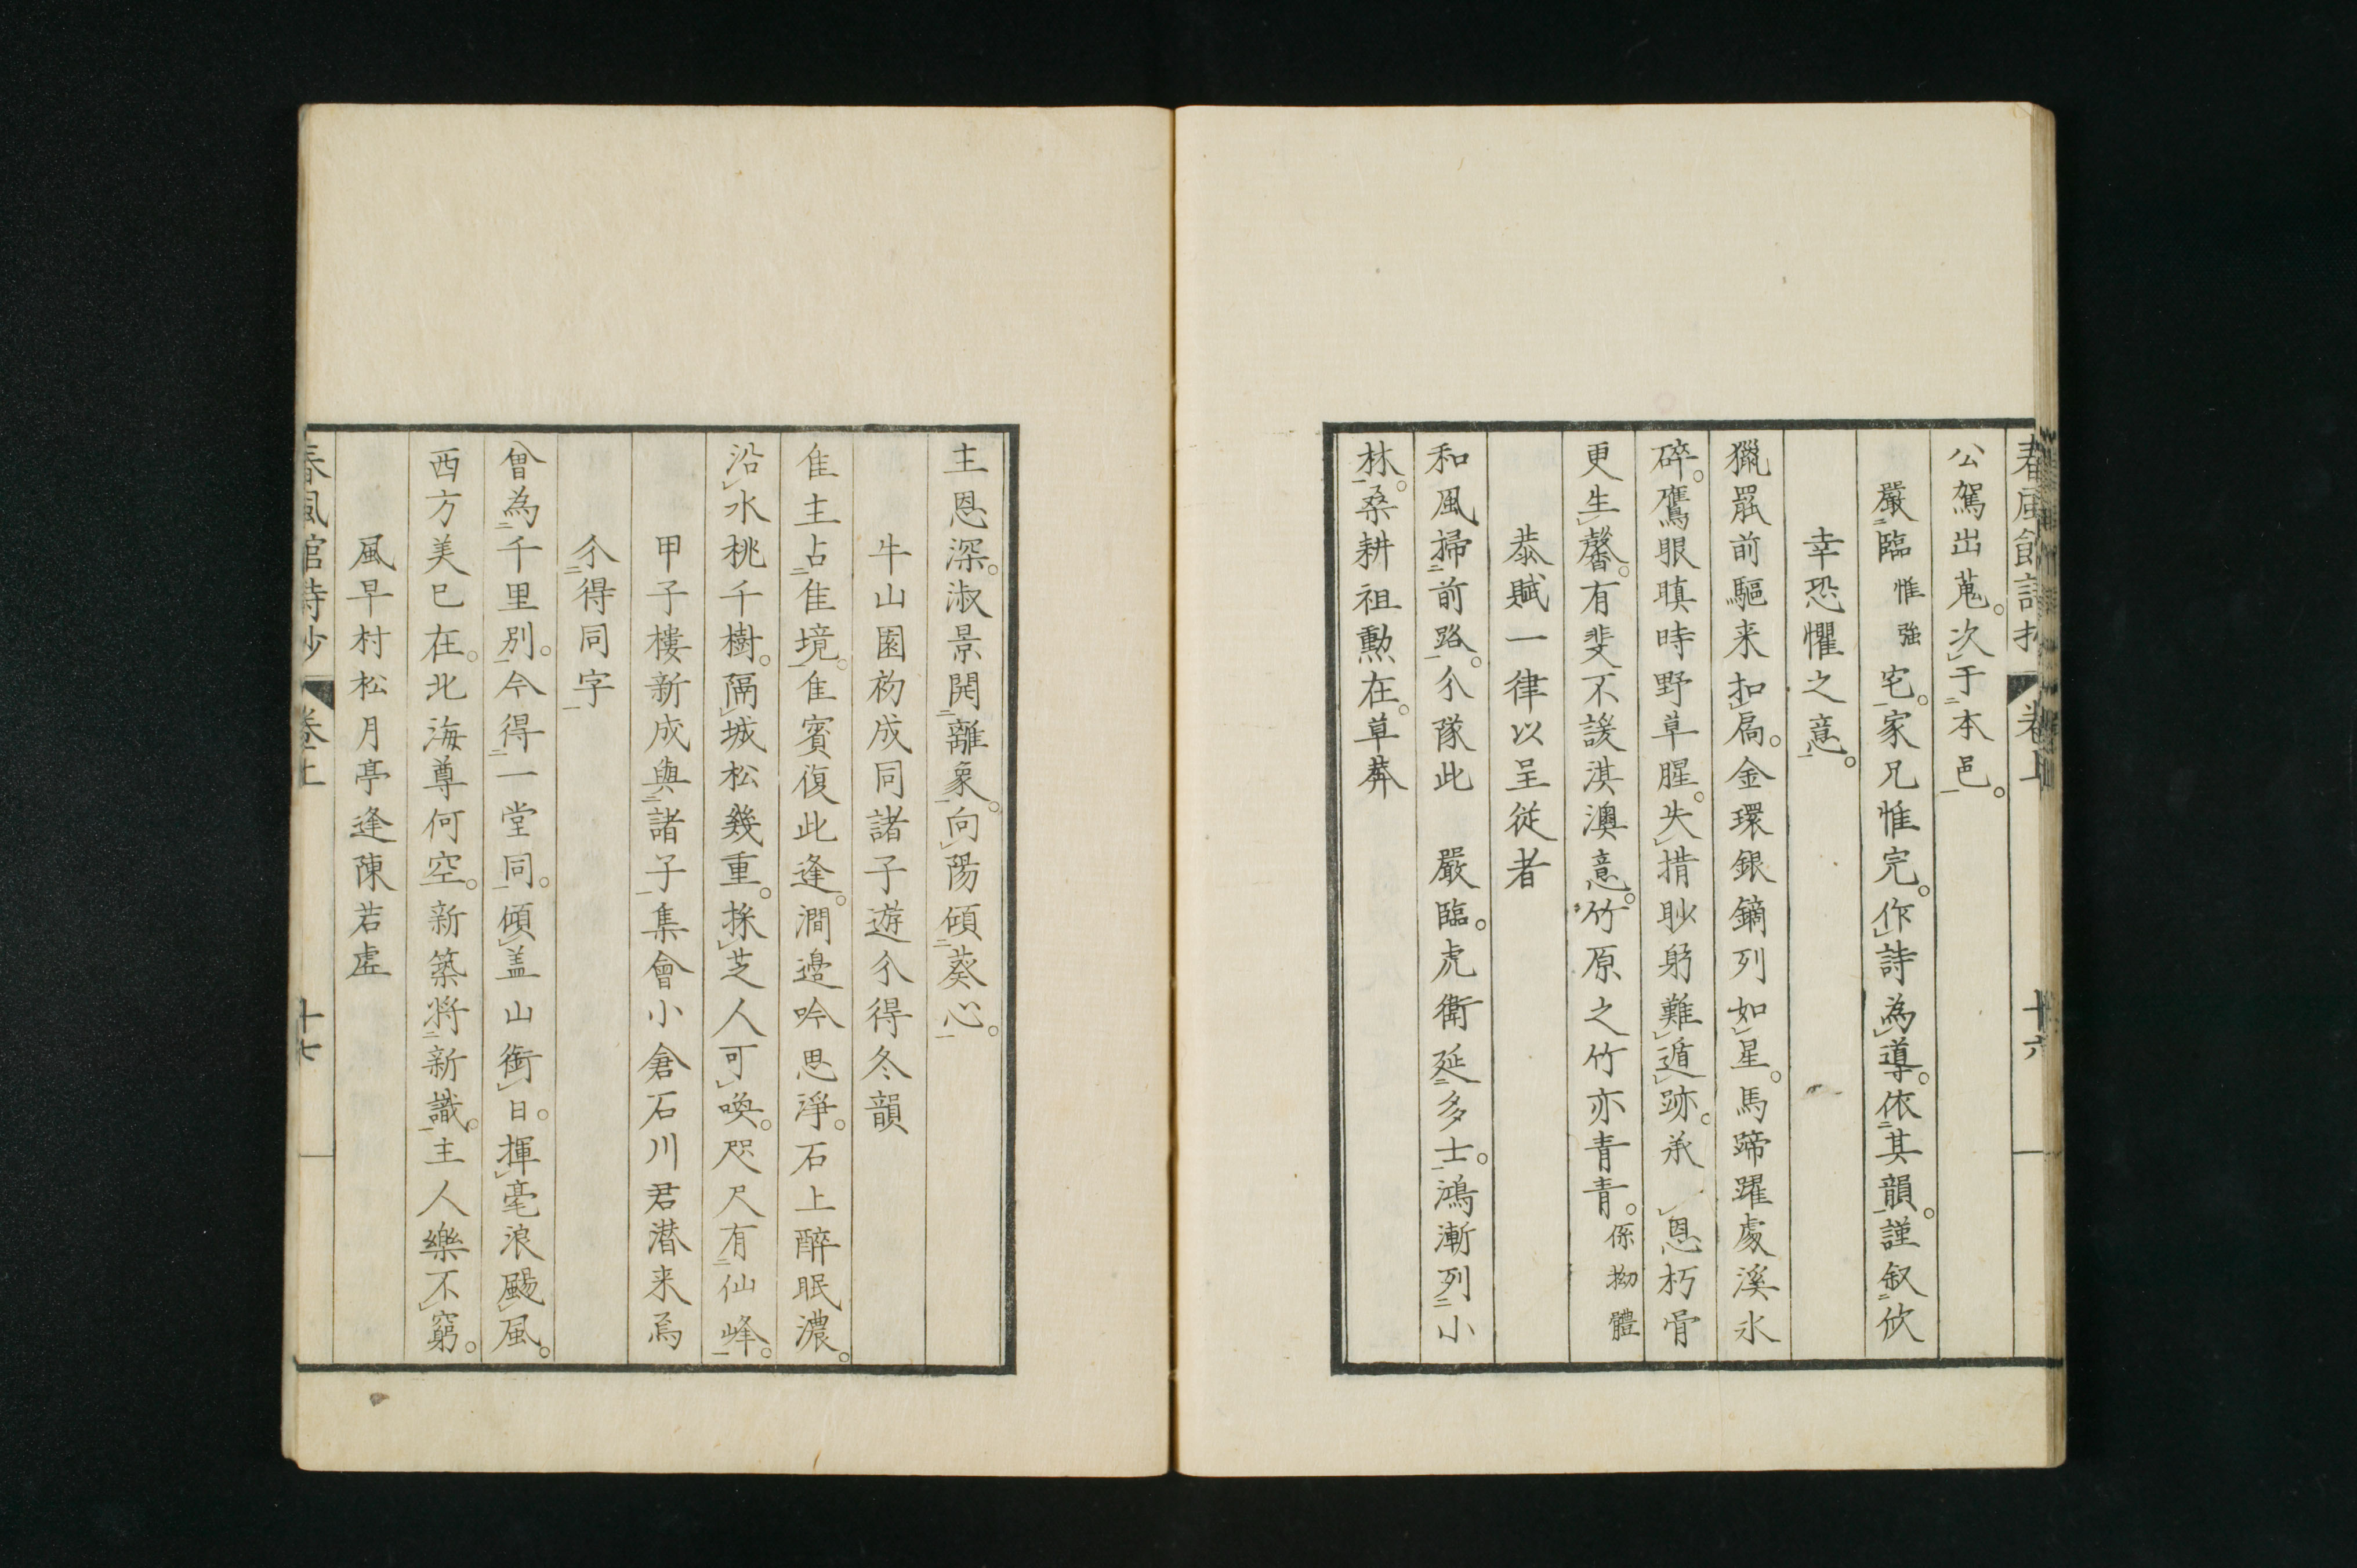 春風館詩抄 卷上 十六
公駕出蒐。次于本邑。
嚴臨惟強宅。家兄惟完。作詩為導。依其韻。謹叙欣
幸恐懼之意。
獵罷前驅来扣扃。金環銀鏑列如星。馬蹄躍處溪氷
碎。鷹眼瞋時野草腥。失措眇躬難遁跡。承 恩朽骨
更生馨。有斐不諼淇澳意。竹原之竹亦青青。係拗體
恭賦一律以呈従者
和風掃前路。分隊此 嚴臨。虎衛延多士。鴻漸列小
林。桑耕祖勲在。草莽
主恩深。淑景開離象。向陽傾葵心。
牛山園初成同諸子遊分得冬韻
佳主占佳境。佳賓復此逢。澗邉吟思淨。石上醉眠濃。
沿水桃千樹。隔城松幾重。採芝人可喚。咫尺有仙峰。
甲子樓新成與諸子集會小倉石川君潜来焉
分得同字
曾為千里別。今得一堂同。傾盖山銜日。揮毫浪颺風。
西方美已在。北海尊何空。新築将新識。主人樂不窮。
風早村松月亭逢陳若虚
春風館詩抄 卷上 十七